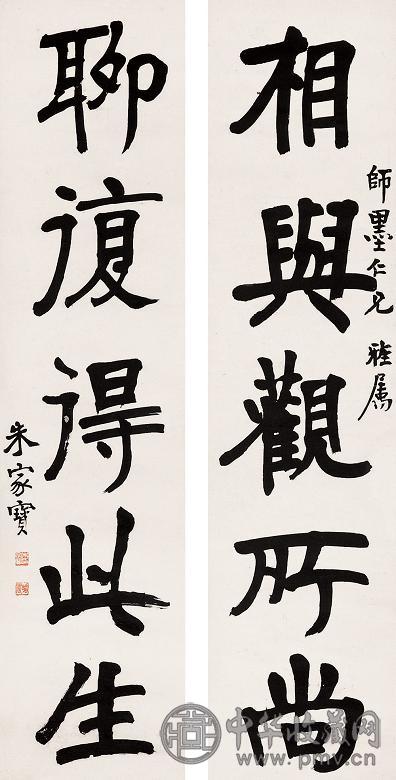 相與觀所尚
師墨仁兄 雅屬
聊復得此生
朱家寶
中华收藏网
www.pmv.cn